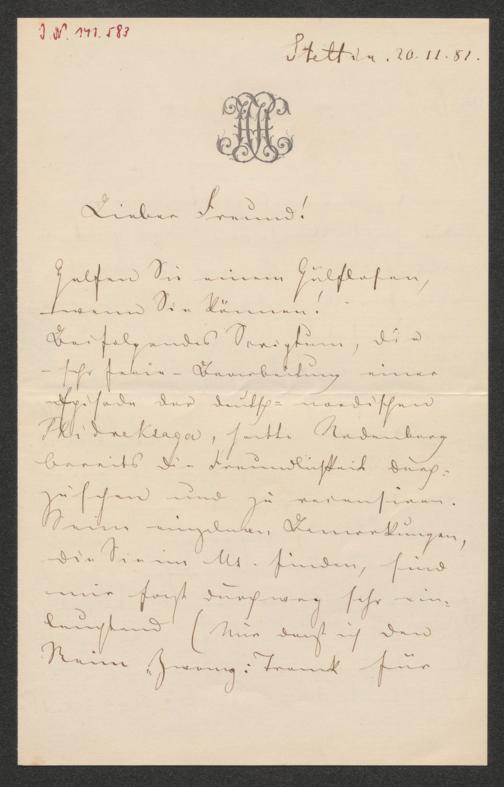 I. N. 141.583
Stettin. 20.11.81.
Lieber Freund!
Helfen Sie einem Hülflosen,
wenn Sie können!
Beifolgendes Scriptum, die
– sehr freie – Bearbeitung einer
Episode der deutsch=nordischen
Thidreksaga, hatte Rodenberg
bereits die Freundlichkeit durch=
zusehen und zu recensiren.
Seine einzelnen Bemerkungen,
die Sie im Ms. finden, sind
mir fast durchweg sehr ein=
leuchtend (Nur daß ich den
Reim „Zwang: Trank für